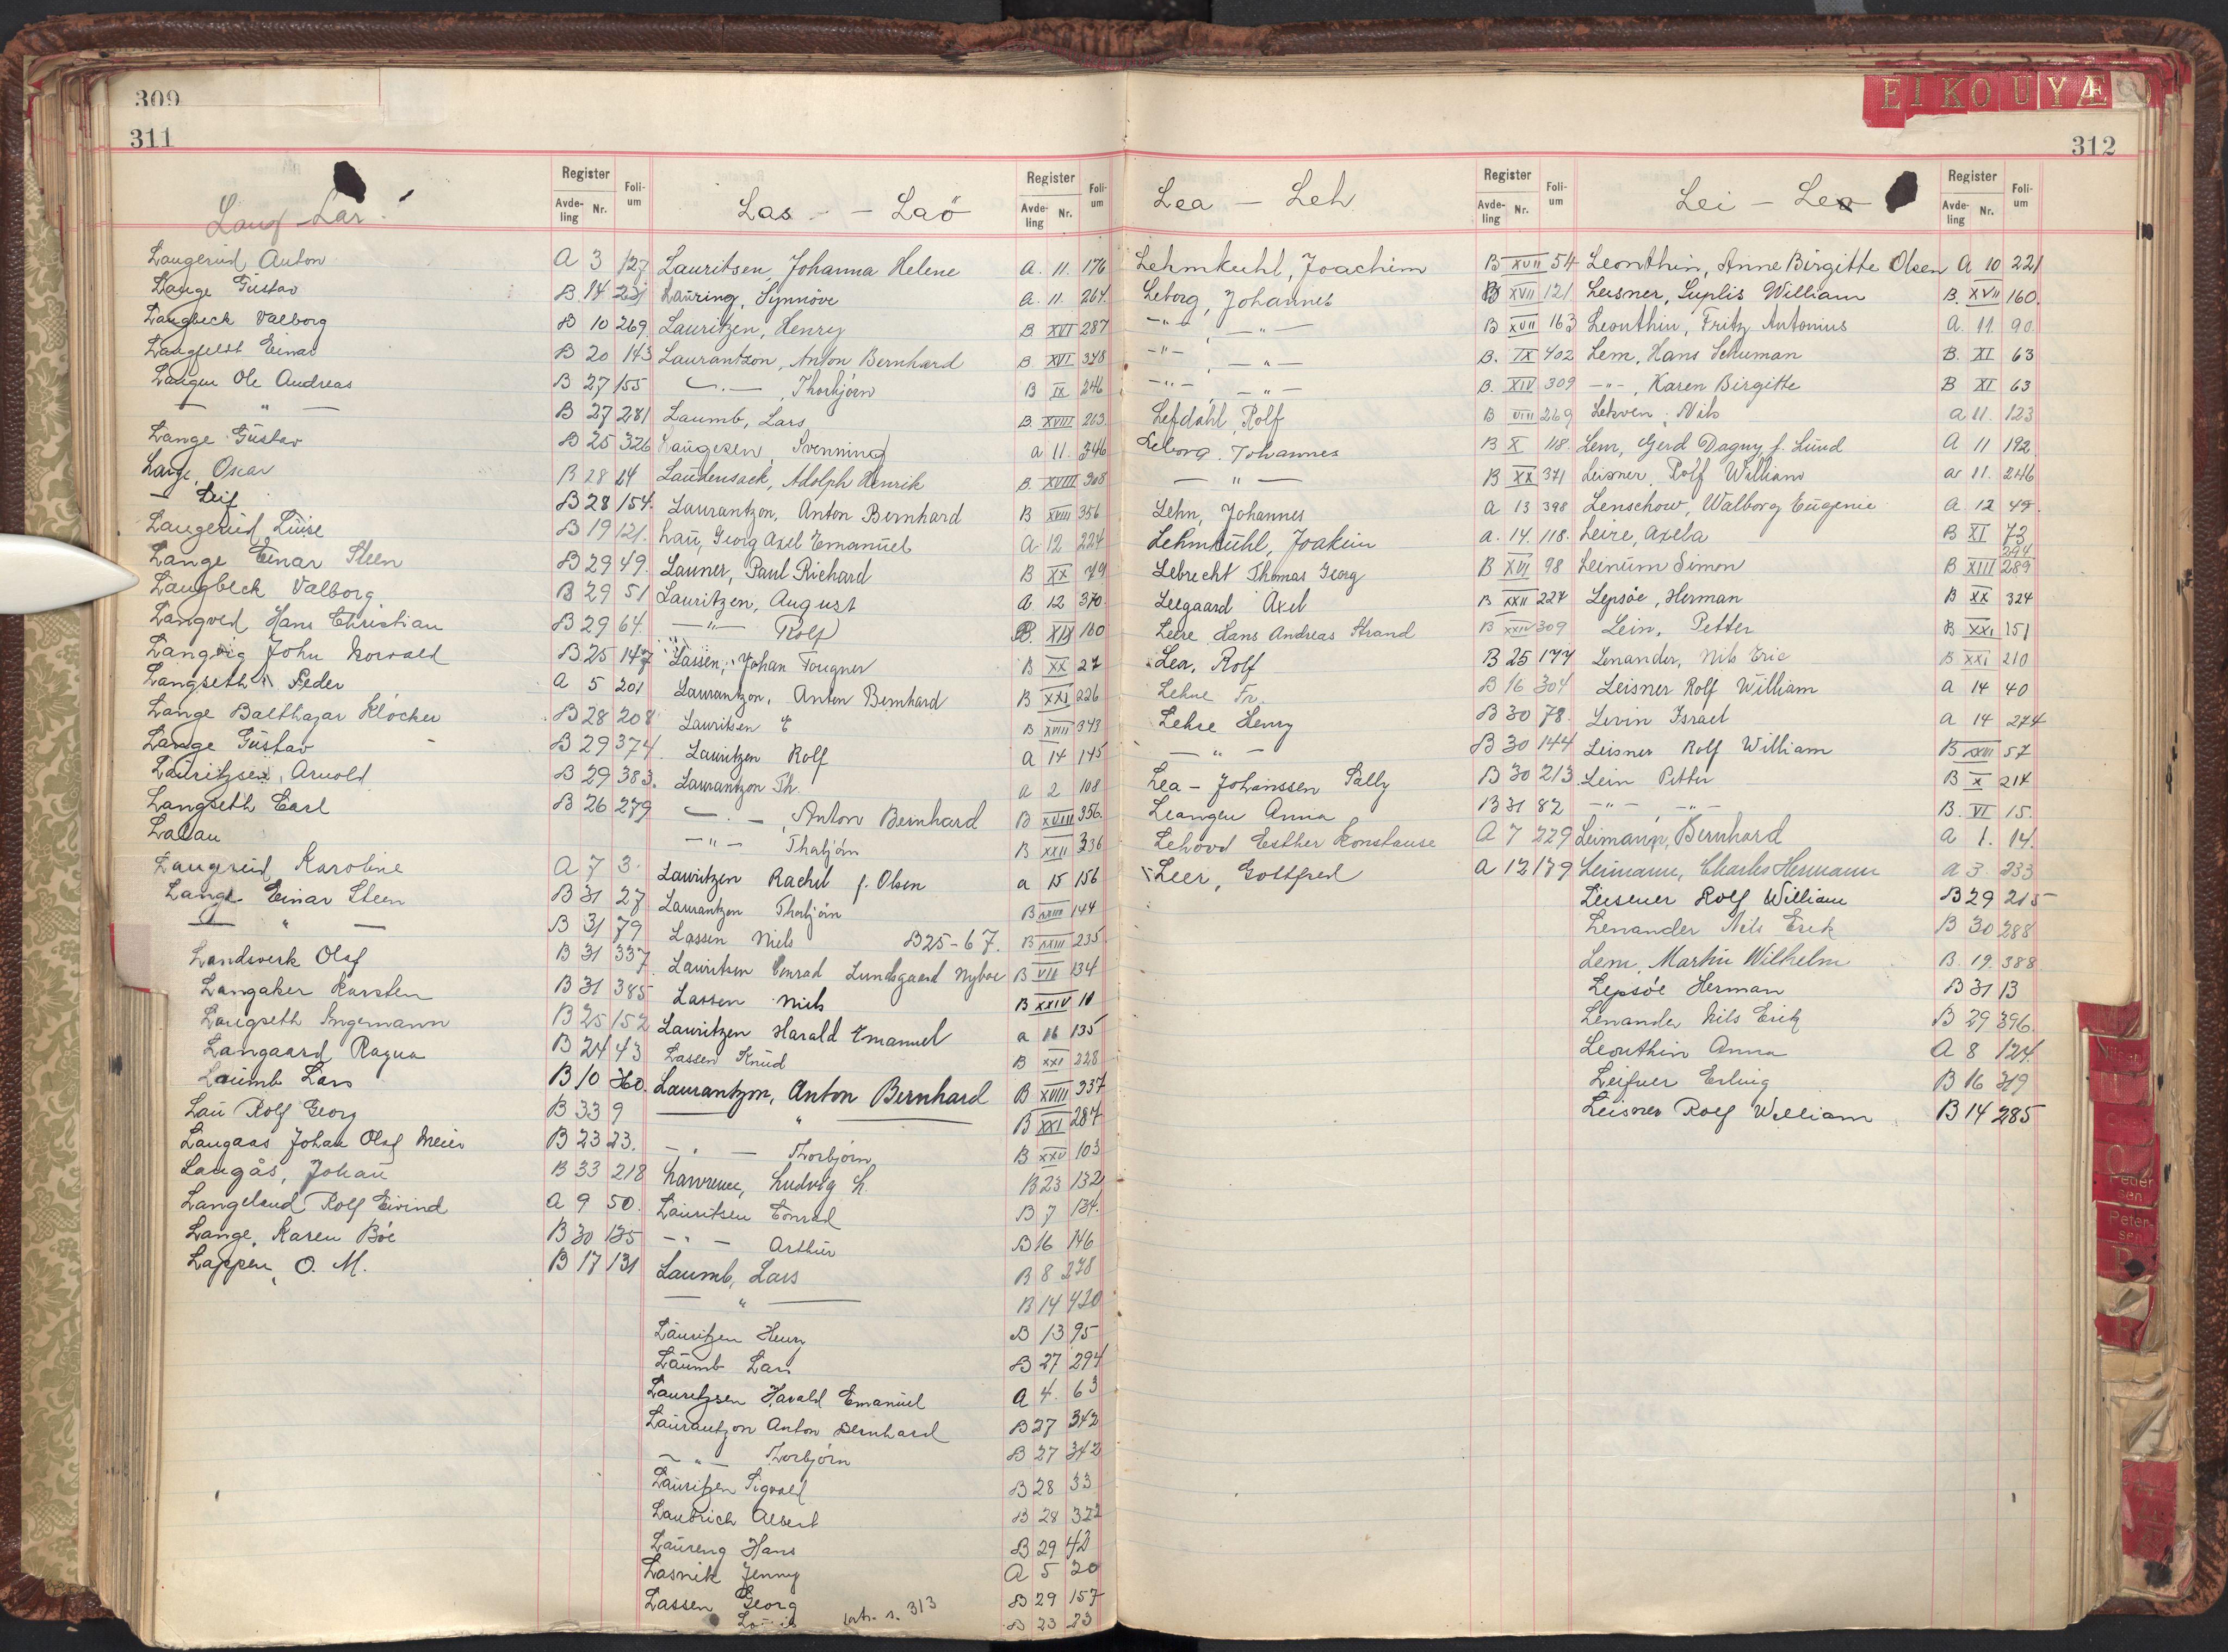 309
311
Register
Foli-
um
Avde-
ling Nr.
Lang - Lar
Langerud Anton A 3 127
Lange Gustav B 14 231
Langbeck Valborg B 10 269
Langfeldt Einar B 20 143
Langen Ole Andreas B 27 155
— " — B 27 281
Lange Gustav B 25 326
Lange, Oscar B 28 14
— Leif B 28 154
Langerud Luise B 19 121
Lange Einar Steen B 29 49
Langbeck Valborg B 29 51
Langved Hans Christian B 29 64
Langvig John Norvald B 25 147
Langseth Peder A 5 201
Lange Balthazar Klöcker B 28 208
Lange Gustav B 29 374
Lauritzsen, Arnold B 29 383
Langseth Carl B 26 279
Lalau
Langreid Karoline A 7 3
Lange Einar Steen B 31 27
— " — B 31 79
Landsverk Olaf B 31 337
Langaker Karsten B 31 385
Langseth Ingemann B 25 152
Langaard Ragna B 24 43
Laumb Lars B 10 360
Lau Rolf Georg B 33 9
Langaas Johan Olaf Meier B 23 23
Langås, Johan B 33 218
Langeland Rolf Eivind A 9 50
Lange, Karen Böe B 30 135
Lappen, O. M. B 17 131
Register
Foli-
um
Avde-
ling Nr.
Las - - Laö
Lauritsen, Johanna Helene A. 11. 176
Lauring, Synnöve A. 11. 264
Lauritzen, Henry B. XVI 287
Laurantzon, Anton Bernhard B. XVI 378
— . — , Thorbjörn B IX 246
Laumb, Lars B. XVIII 263
Haugesen, Svenning A 11. 346
Laudensack, Adolph Henrik B. XVIII 308
Laurantzon, Anton Bernhard B XVIII 356
Lau, Georg Axel Emanuel A. 12 224
Launer, Paul Richard B XX 79
Lauritzen, August A 12 370
— " — Rolf B. XIX 160
Lassen, Johan Fougner B XX 27
Laurantzon, Anton Bernhard B XXI 226
Lauritsen E B XVIII 343
Lauritzen Rolf A 14 145
Laurantzon Th. A 2 108
— . — , Anton Bernhard B XVIII 356
— " — Thorbjörn B XXII 336
Lauritzen Rachel f. Olsen A 15 156
Laurantzon Thorbjörn B XXIII 144
Lassen Niels B25-67. B XXIII 235
Lauritsen Conrad Lundsgaard Nyboe B VII 134
Lassen Niels B XXIV 10
Lauritzen Harald Emanuel A 16 135
Lassen Knud B XXI 228
Laurantzon, Anton Bernhard B XVIII 337
— " — B XXI 287
— " — Thorbjörn B XXV 103
Lawrence, Ludvig L. B 23 132
Lauritsen Conrad B 7 134
— " — Arthur B 16 146
Laumb, Lars B 8 278
— " — B 14 420
Lauritzen Henry B 13 95
Laumb Lars B 27 294
Lauritzsen Harald Emanuel A 4. 63
Laurantzon Anton Bernhard B 27 342
— " — Thorbjörn B 27 342
Lauritzen Sigvald B 28 33
Laubrich Albert B 28 322
Laureng Hans B 29 42
Lasnik Jenny A 5 20
Lassen Georg B 29 157
B 23 23
s. 313
312
E I K O U Y Æ
Register
Foli-
um
Avde-
ling Nr.
Lea - Leh
Lehmkuhl, Joachim B XVII 54
Leborg, Johannes B XVII 121
— " — , — " — B XVII 163
— " — , — " — B. IX 402
— " — , — " — B. XIV 309
Lefdahl, Rolf B VIII 269
Leborg. Johannes B X 118
— " — B XX 371
Lehn, Johannes A 13 398
Lehmkuhl, Joakim A. 14. 118.
Lebrecht Thomas Georg B XVI 98
Leegaard Axel B XXII 227
Leere Hans Andreas Strand B XXIV 309
Lea, Rolf B 25 177
Lehne Fr. B 16 304
Lehre Henry B 30 78
— " — B 30 144
Lea - Johanssen Sally B 30 213
Leangen Anna B 31 82
Lehovd Esther Konstanse A 7 229
Leer, Gottfred A 12 179
Register
Foli-
um
Avde-
ling Nr.
Lei - Leo
Leonthin, Anne Birgitte Olsen A 10 221
Leisner, Suplis William B. XVII 160.
Leonthin, Fritz Antonius A. 11. 90.
Lem, Hans Schuman B. XI 63
— " — , Karen Birgitte B XI 63
Lekven, Nils A 11. 123
Lem, Gerd Dagny f. Lund A 11 192
Leisner, Rolf William A 11. 246
Lenschow, Walborg Eugenie A. 12 49.
Leire, Axela B XI 73
294
Leinum Simon B XIII 289
Lepsöe, Herman B XX 324
Lein, Petter B XXI 151
Lenander, Nils Eric B XXI 210
Leisner Rolf William A 14 40
Levin Israel A 14 274
Leisner Rolf William B XXIII 57
Lein Petter B X 214
— " — — " — B. VI 15.
Leimann, Bernhard A 1. 14.
Leimann, Charles Hermann A 3 233
Leisener Rolf William B 29 215
Lenander Nils Erik B 30 288
Lem, Martin Wilhelm B. 19. 388
Lepsöe Herman B 31 13
Lenander Nils Erik B 29 396
Leonthin Anna A 8 124
Leifner Erling B 16 319
Leisner Rolf William B 14 285
Peder
sen
Peter-
sen
P